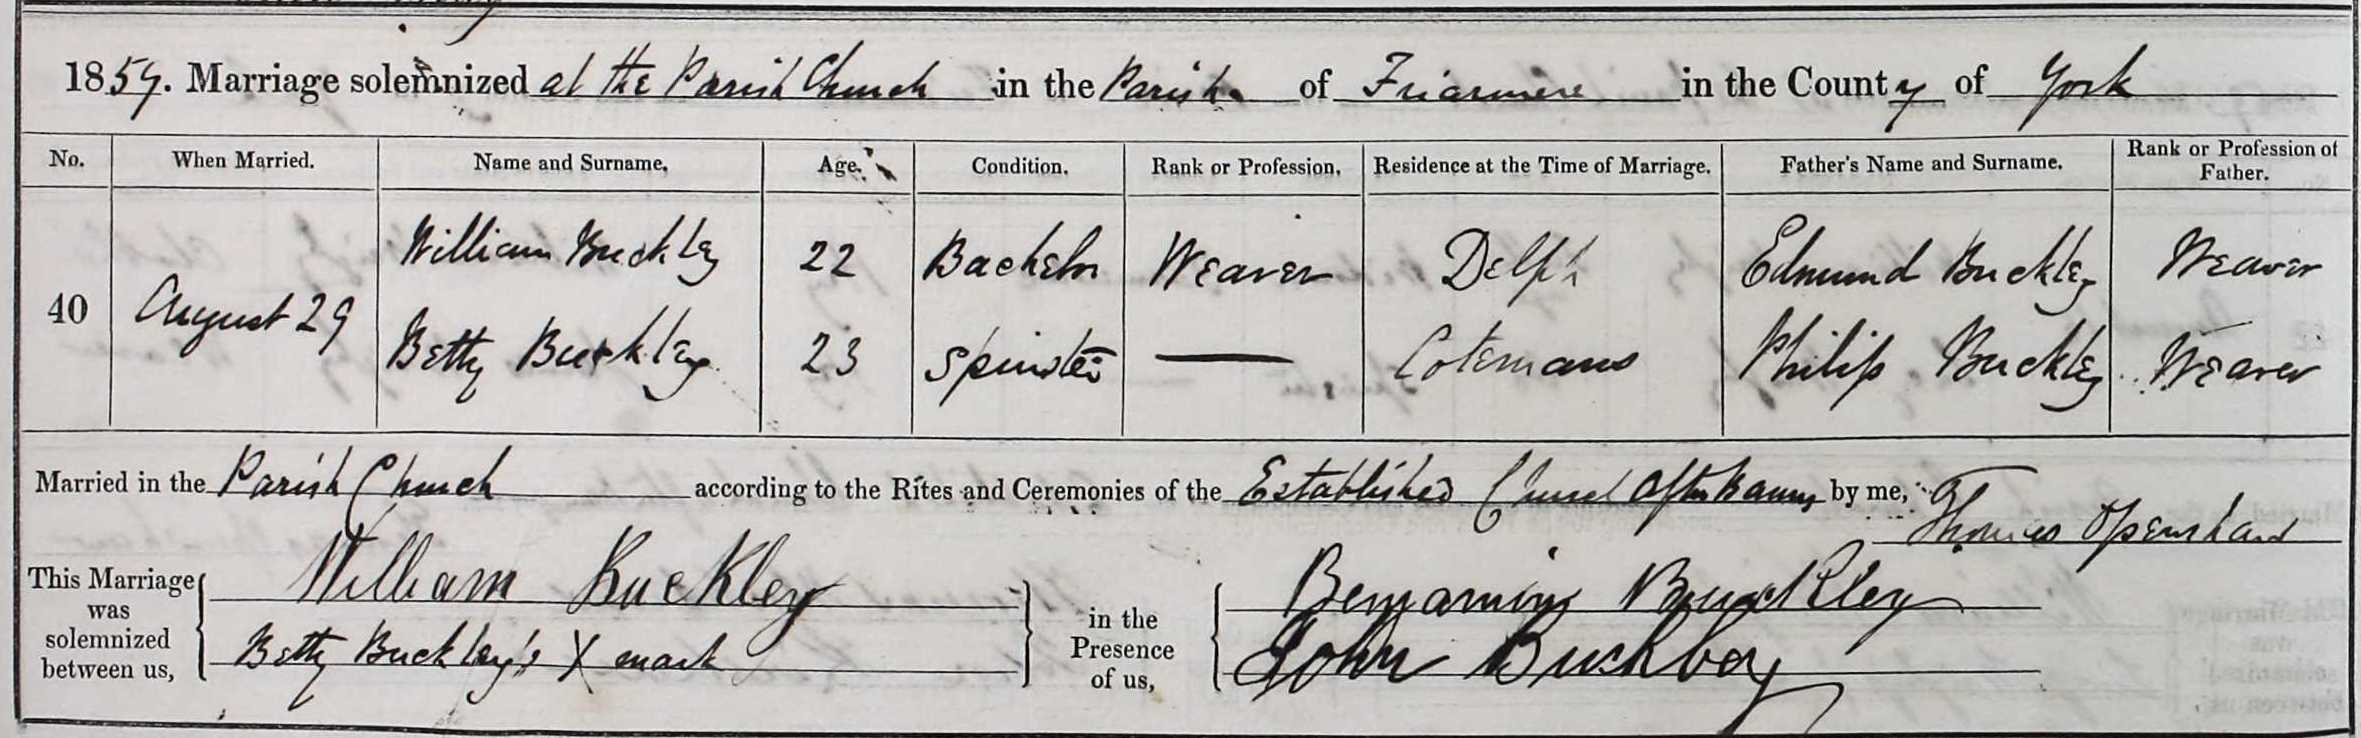 1859. Marriage solemnized at the Parish Church in the Parish of Friarmere in the County of York
No. When Married. Name and Surname, Age. Condition. Rank or Profession. Residence at the Time of Marriage. Father's Name and Surname. Rank or Profession of Father.
40 August 29
William Buckley 22 Bachelor Weaver Delph Edmund Buckley Weaver
Betty Buckley 23 Spinster — Philip Buckley Weaver
Married in the Parish Church according to the Rites and Ceremonies of the Established Church after Banns by me, Thomas Openshaw
This Marriage was solemnized between us,
William Buckley
Betty Buckley's X mark
in the Presence of us,
Benjamin Buckley
John